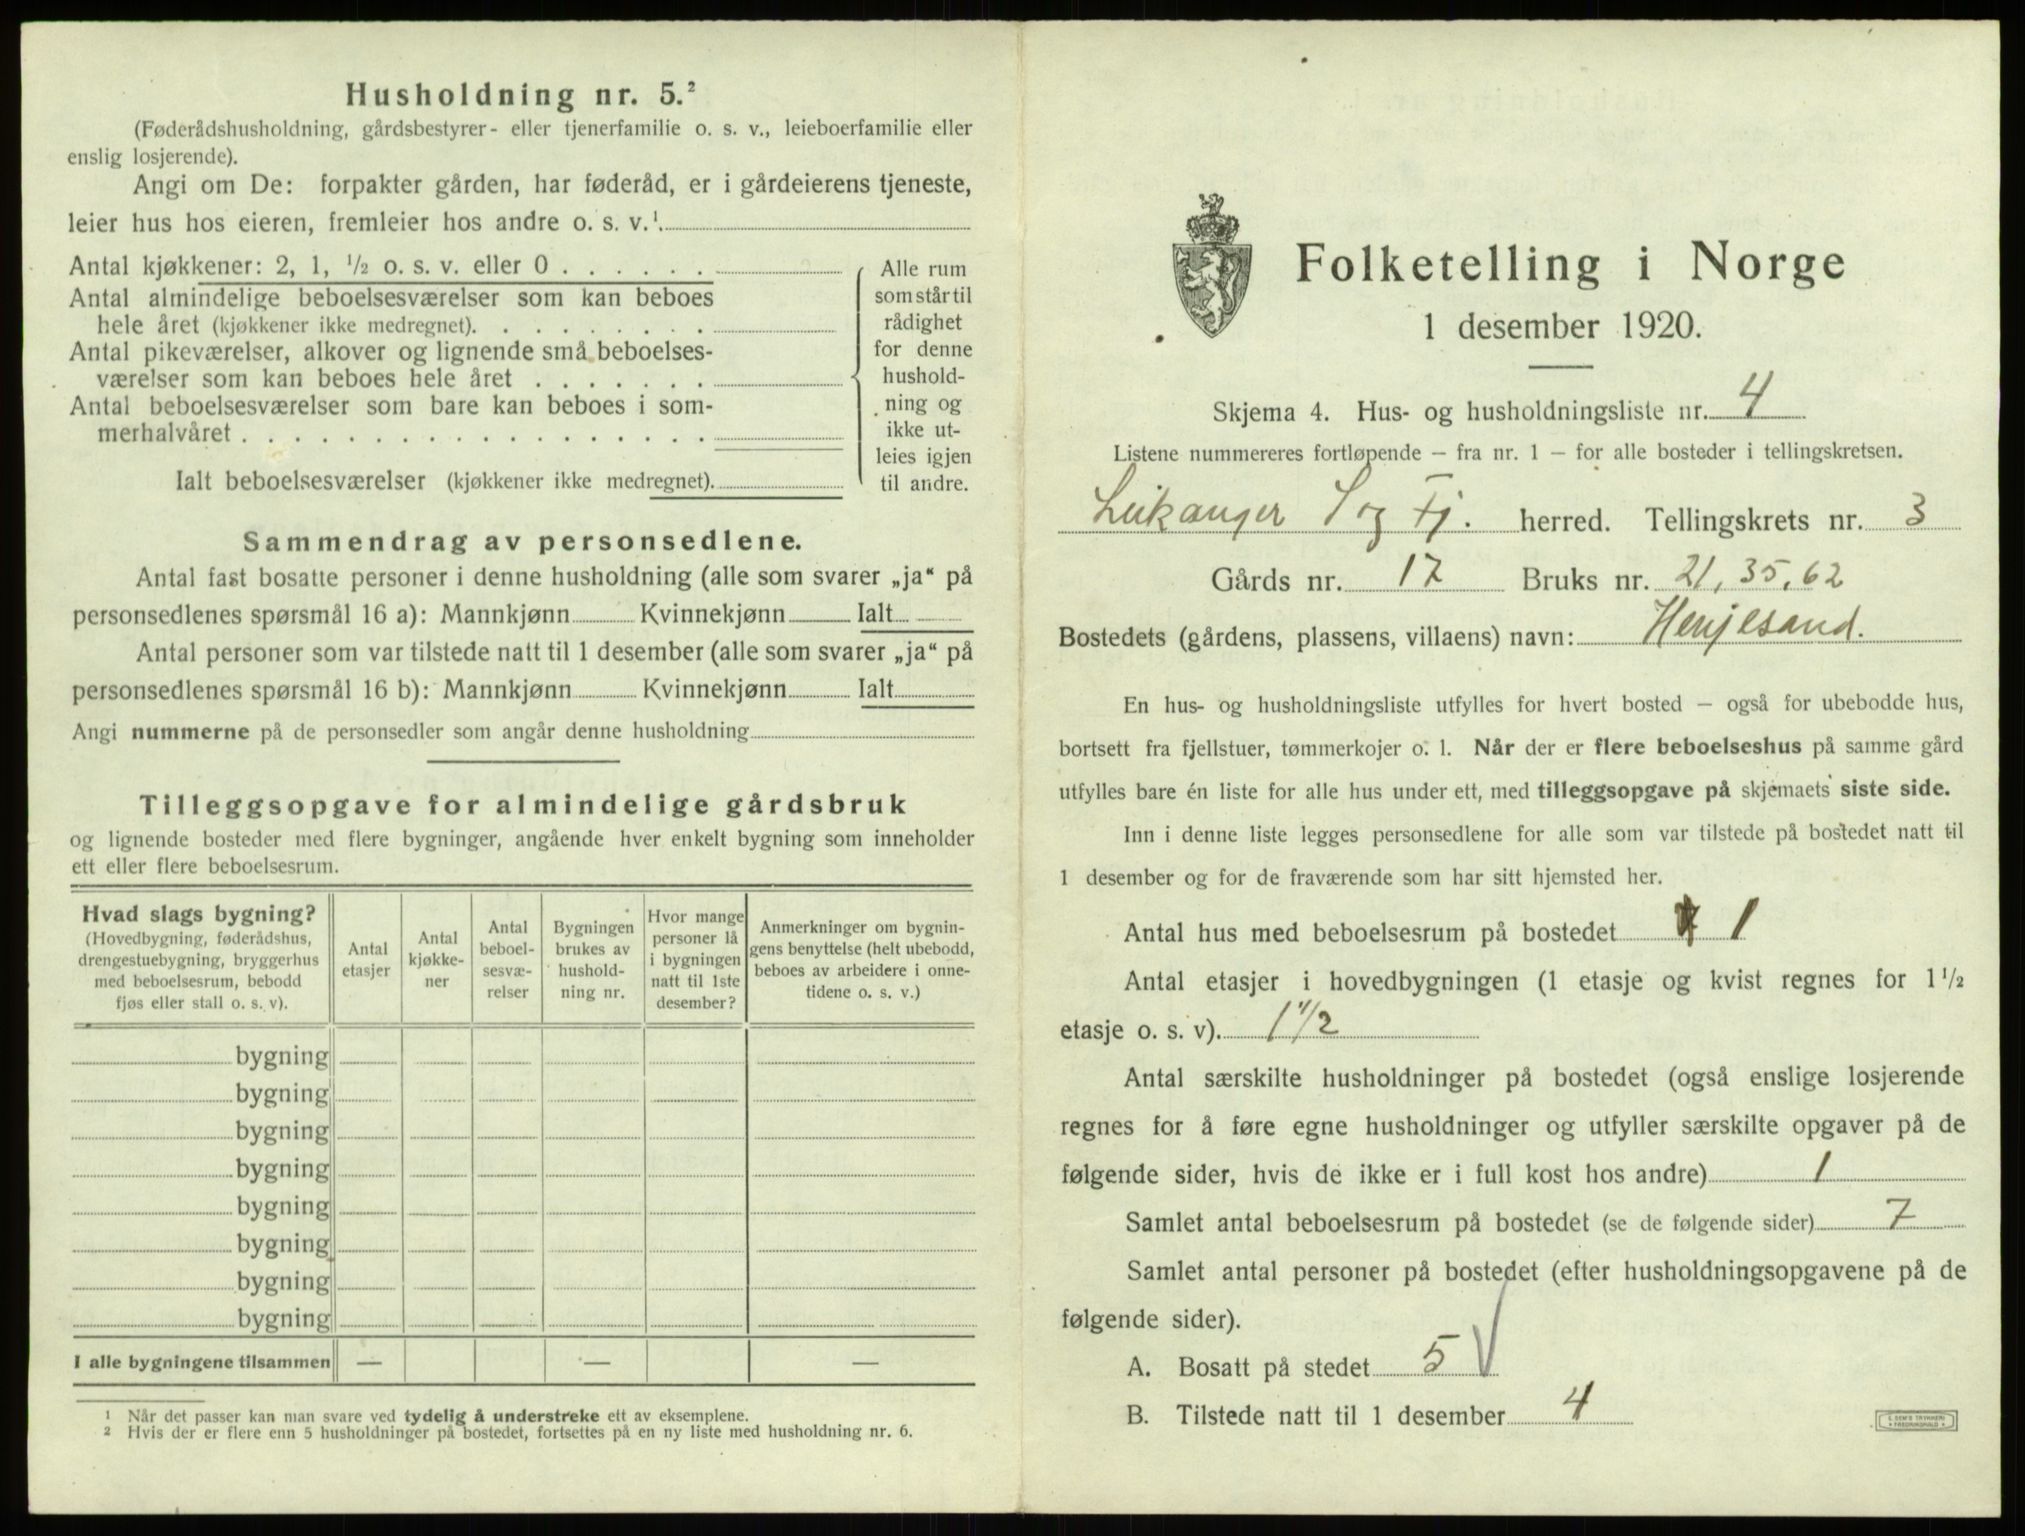 Husholdning nr. 5.²
(Føderådshusholdning, gårdsbestyrer- eller tjenerfamilie o. s. v., leieboerfamilie eller
enslig losjerende).
Angi om De: forpakter gården, har føderåd, er i gårdeierens tjeneste,
leier hus hos eieren, fremleier hos andre o. s. v.¹.
Antal kjøkkener: 2, 1, ½ o. s. v. eller 0 . . . . . .
Antal almindelige beboelsesværelser som kan beboes
hele året (kjøkkener ikke medregnet). . . . . . . . .
Antal pikeværelser, alkover og lignende små beboelses-
værelser som kan beboes hele året . . . . . . .
Antal beboelsesværelser som bare kan beboes i som-
merhalvåret . . . . . . . . . . . . . . . . . .
Ialt beboelsesværelser (kjøkkener ikke medregnet).
Alle rum
som står til
rådighet
for denne
hushold-
ning og
ikke ut-
leies igjen
til andre.
Sammendrag av personsedlene.
Antal fast bosatte personer i denne husholdning (alle som svarer „ja“ på
personsedlenes spørsmål 16 a): Mannkjønn Kvinnekjønn Ialt
Antal personer som var tilstede natt til 1 desember (alle som svarer „ja“ på
personsedlenes spørsmål 16 b): Mannkjønn Kvinnekjønn Ialt
Angi nummerne på de personsedler som angår denne husholdning
Tilleggsopgave for almindelige gårdsbruk
og lignende bosteder med flere bygninger, angående hver enkelt bygning som inneholder
ett eller flere beboelsesrum.
Hvad slags bygning?
(Hovedbygning, føderådshus,
drengestuebygning, bryggerhus
med beboelsesrum, bebodd
fjøs eller stall o. s. v).
Antal
etasjer
Antal
kjøkke-
ner
Antal
beboel-
sesvæ-
relser
Bygningen
brukes av
hushold-
ning nr.
Hvor mange
personer lå
i bygningen
natt til 1ste
desember?
Anmerkninger om bygnin-
gens benyttelse (helt ubebodd,
beboes av arbeidere i onne-
tidene o. s. v.)
bygning
bygning
bygning
bygning
bygning
bygning
bygning
bygning
I alle bygningene tilsammen — — —
¹ Når det passer kan man svare ved tydelig å understreke ett av eksemplene.
² Hvis der er flere enn 5 husholdninger på bostedet, fortsettes på en ny liste med husholdning nr. 6.
Folketelling i Norge
1 desember 1920.
Skjema 4. Hus- og husholdningsliste nr. 4
Listene nummereres fortløpende — fra nr. 1 — for alle bosteder i tellingskretsen.
Leikanger S og Fj. herred. Tellingskrets nr. 3
Gårds nr. 17 Bruks nr. 21, 35, 62
Bostedets (gårdens, plassens, villaens) navn: Henjesand.
En hus- og husholdningsliste utfylles for hvert bosted — også for ubebodde hus,
bortsett fra fjellstuer, tømmerkojer o. l. Når der er flere beboelseshus på samme gård
utfylles bare én liste for alle hus under ett, med tilleggsopgave på skjemaets siste side.
Inn i denne liste legges personsedlene for alle som var tilstede på bostedet natt til
1 desember og for de fraværende som har sitt hjemsted her.
Antal hus med beboelsesrum på bostedet 1
Antal etasjer i hovedbygningen (1 etasje og kvist regnes for 1 ½
etasje o. s. v). 1 1/2
Antal særskilte husholdninger på bostedet (også enslige losjerende
regnes for å føre egne husholdninger og utfyller særskilte opgaver på de
følgende sider, hvis de ikke er i full kost hos andre) 1
Samlet antal beboelsesrum på bostedet (se de følgende sider) 7
Samlet antal personer på bostedet (efter husholdningsopgavene på de
følgende sider).
A. Bosatt på stedet 5 V
B. Tilstede natt til 1 desember 4
E. SEM'S TRYKKERI
FREDRIKSHALD